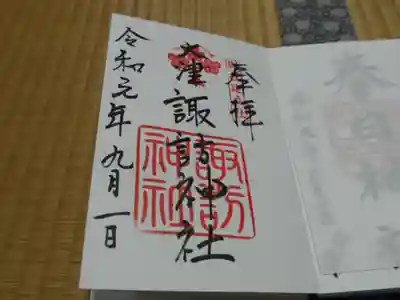 奉拝
大津諏訪神社
諏訪
神社
令和元年九月一日